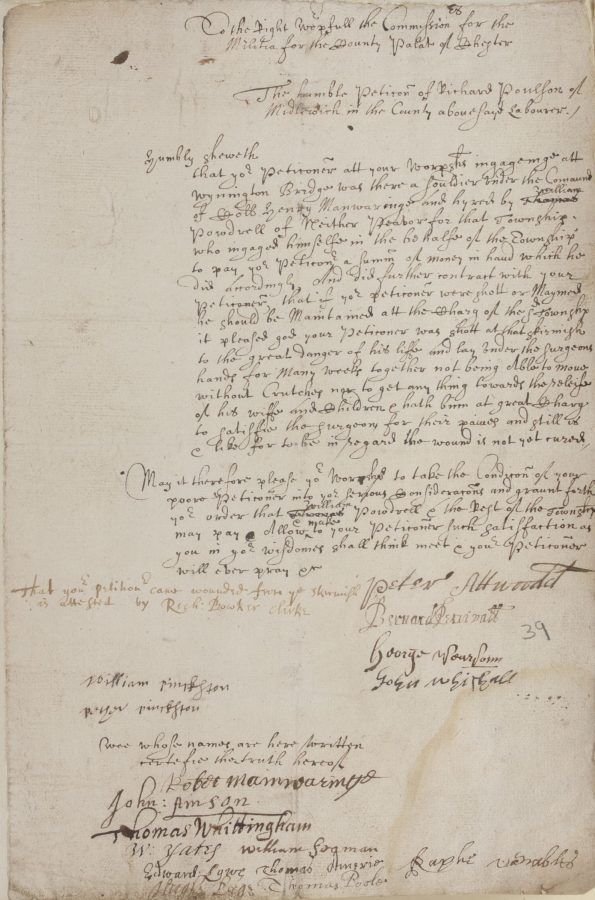 To the Right Wor:pfull the Commissionres for the
Militia for the County Palat of Chester
The humble Peticon of Richard Poulson of
Midlewich in the County abovesayd Labourer./
Humbly sheweth
that yor Peticoner att your Worpps ingageinge att
Wynnington Bridge was there a souldier under the Comaund
of Coll Henry Manwaringe and hyred by William Thomas
Powdrell of Neither Peavor for that Township
who ingaged himselfe in the behalfe of the Township
to pay yor Peticonr a summ of money in hand which he
did accordingly And did further contract with your
Peticoner that if yor peticoner were shott or Maymed
he should be Maintained att the Charg of the sd Township
it pleased god your Peticoner was shott at that skirmish
to the great danger of his liffe and lay under the surgeons
hands for Many weeks together not being Able to move
without Crutches nor to get any thing towards the releife
of his wiffe and Children & hath binn at great Charg
to satisfie the surgeon for their paines and still is
& like for to be in regard the wound is not yet cured,
May it therefore please yor Worpps to take the Condicon of your
poore Peticoner into yor serious Consideracons and graunt forth
yor order that William Thomas Powdrell & the Rest of the Township
may pay & Allow to your Peticoner such satisfaction as
you in yor wisdomes shall think meet & your Peticoner
will ever pray &c
That your petitionr came wounded from ye skermish
is attested by Rich: Bowker clerke
Peter Attwood
Bernard Percivall
39
George
John Whishall
William Pinckston
Peter Pinckston
Wee whose names are here written
certefie the truth hereof
Robet Mainwaringe
John: Amson
Thomas Whittingham
W: Yates William Seaman
Edward Lowe Thomas Raphe Venables
Hugh Page Thomas Poole